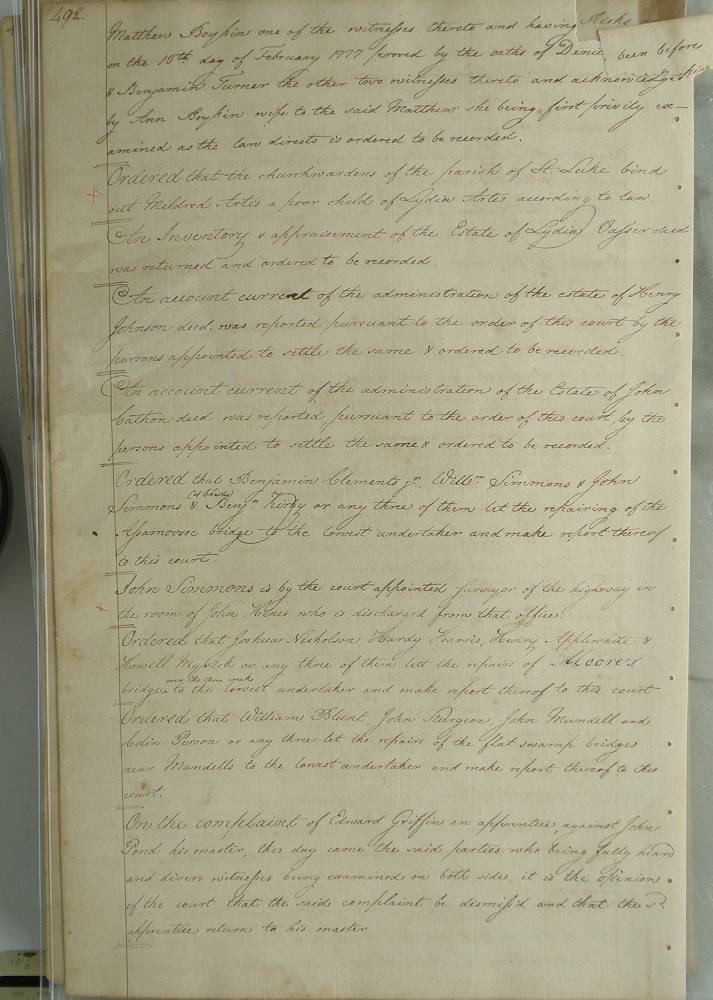 492.
Matthew Boykin one of the witnesses thereto and having
on the 13th day of February 1777 proved by the oaths of
been before
& Benjamin Turner the other two witnesses thereto and acknowledged
by Ann Boykin wife to the said Matthew she being first privily ex-
amined as the law directs is ordered to be recorded.
Ordered that the churchwardens of the parish of St. Luke bind
out Mildred Artis a poor child of Lydia Artis according to law.
An Inventory & appraisement of the Estate of Lydia Vasser deced
was returned and ordered to be recorded.
An account current of the administration of the estate of Henry
Johnson deed. was reported pursuant to the order of this court by the
persons appointed to settle the same & ordered to be recorded.
An account current of the administration of the Estate of John
Cathon deed. was reported, pursuant to the order of this court, by the
persons appointed to settle the same & ordered to be recorded.
Ordered that Benjamin Clements jr. Willm. Simmons & John
Simmons & Benjn. Kirby or any three of them let the repairing of the
Assamoosoc bridge to the lowest undertaker and make report thereof
to this court.
John Simmons is by the court appointed surveyor of the highway in
the room of John Hines who is discharged from that office.
Ordered that Joshua Nicholson Hardy Harris, Henry Applewhite &
Howell Myrick or any three of them lett the repairs of Moores
bridge to the lowest undertaker and make report thereof to this court
Ordered that William Blunt, John Sturgeon, John Mundell and
Colin Person or any three let the repairs of the flat swamp bridge
near Mundells to the lowest undertaker and make report thereof to this
court.
On the complaint of Edward Griffin an apprentice, against John
Pond his master, this day came the said parties who being fully heard
and divers witnesses being examined on both sides, it is the opinion
of the court that the said complaint be dismiss'd and that the sd.
apprentice return to his master